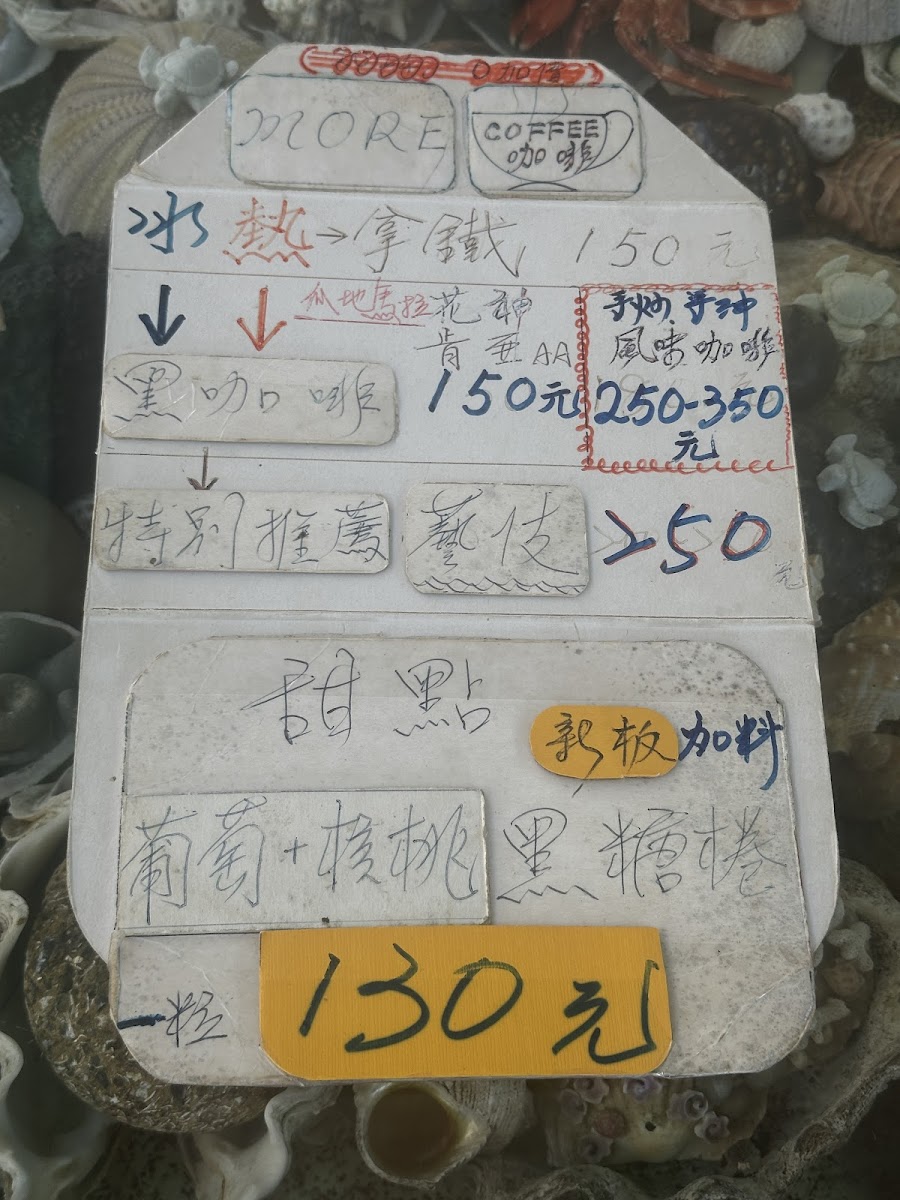 MORE
COFFEE
咖啡
冰 熱→拿鐵 150元
瓜地馬拉 花神
肯亞AA
黑咖啡
150元
手炒手沖
風味咖啡
250-350
元
特別推薦 藝伎 250元
甜點
新板 加料
葡萄+核桃 黑糖捲
一粒 130元